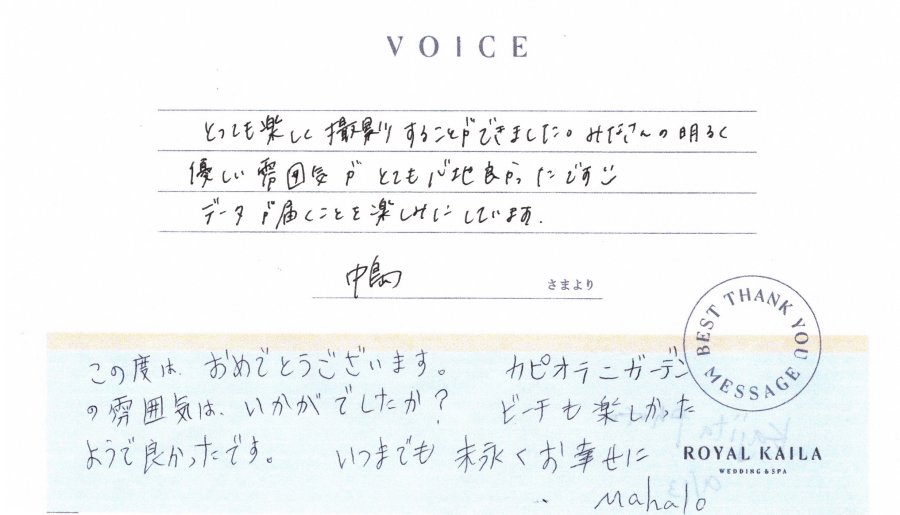 VOICE
とっても楽しく撮影することができました。みなさんの明るく
優しい雰囲気がとても心地良かったです
データが届くことを楽しみにしています.
中島
さまより
BEST THANK YOU MESSAGE
この度は、おめでとうございます。 カピオラニガーデン
の雰囲気は、いかがでしたか? ビーチも楽しかった
ようで良かったです。 いつまでも末永くお幸せに
ROYAL KAILA
WEDDING & SPA
Mahalo